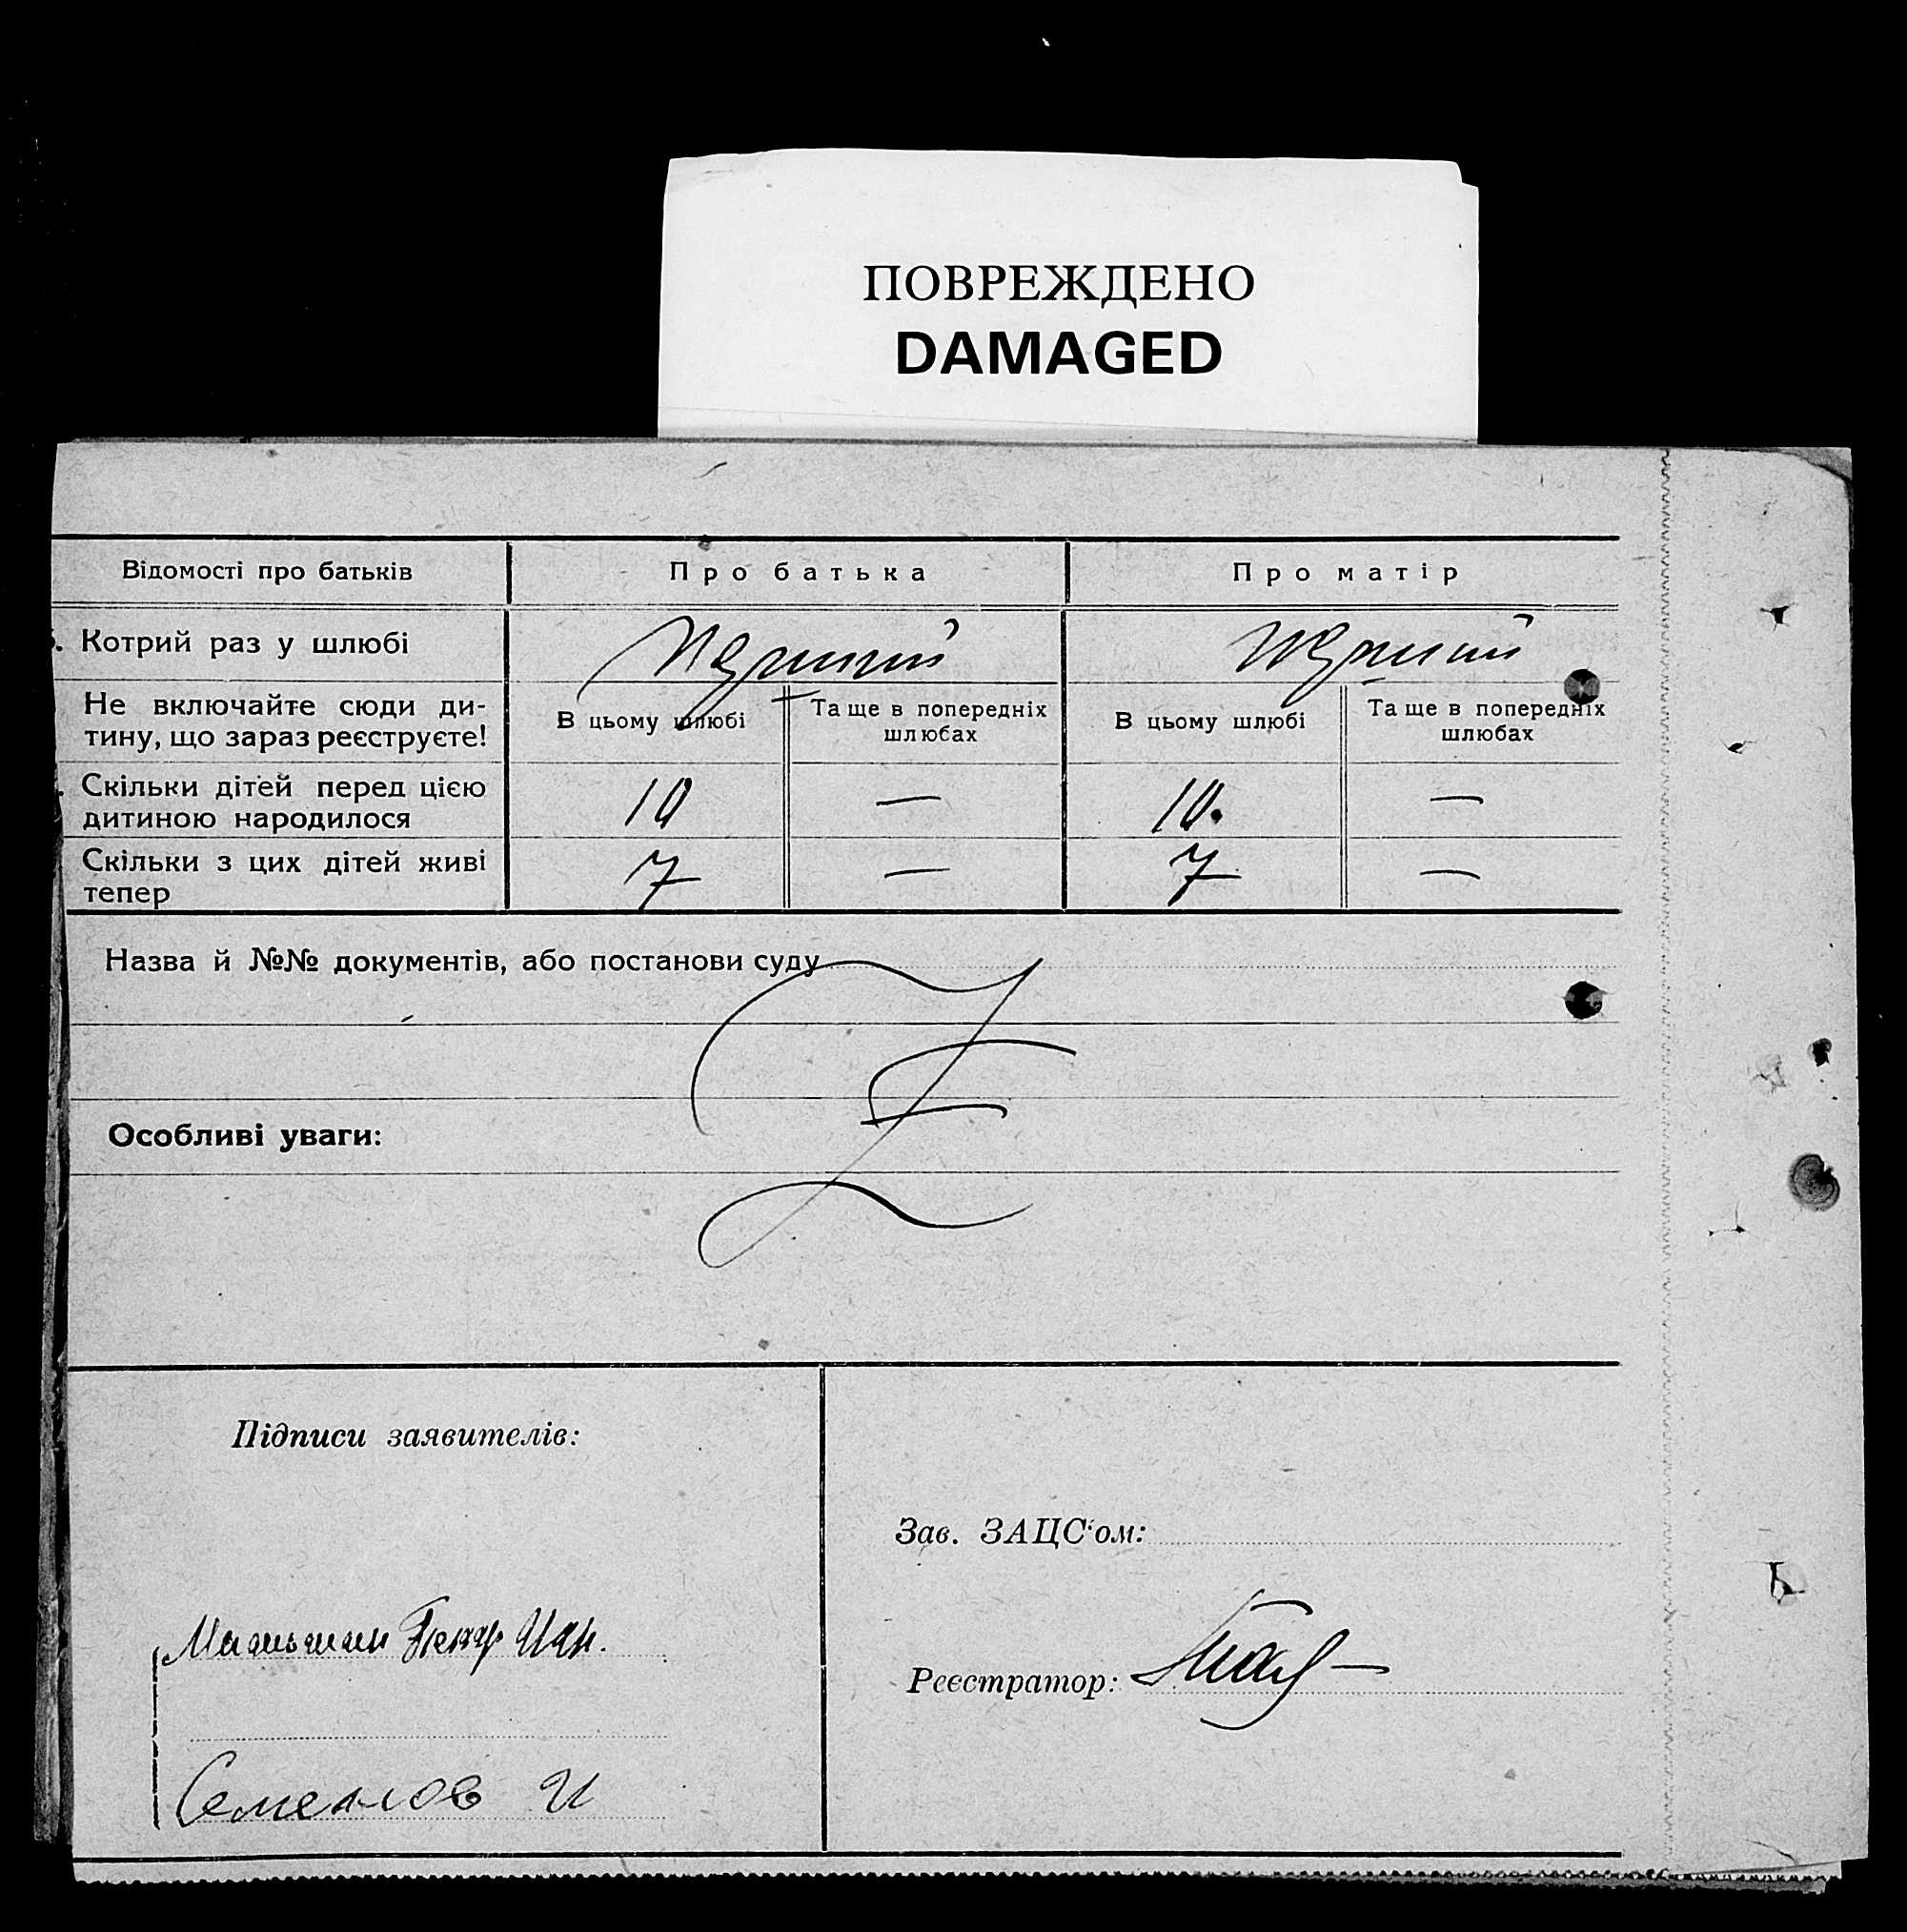 ПОВРЕЖДЕНО
DAMAGED
Відомості про батьків
Про батька
Про матір
Котрий раз у шлюбі
Перший
Перший
Не включайте сюди ди-
тину, що зараз реєструєте!
В цьому шлюбі
Та ще в попередніх
шлюбах
В цьому шлюбі
Та ще в попередніх
шлюбах
Скільки дітей перед цією
дитиною народилося
10 — 10. —
Скільки з цих дітей живі
тепер
7 — 7 —
Назва й №№ документів, або постанови суду
Особливі уваги:
Підписи заявителів:
Зав. ЗАЦС'ом:
Реєстратор:
Семенов И